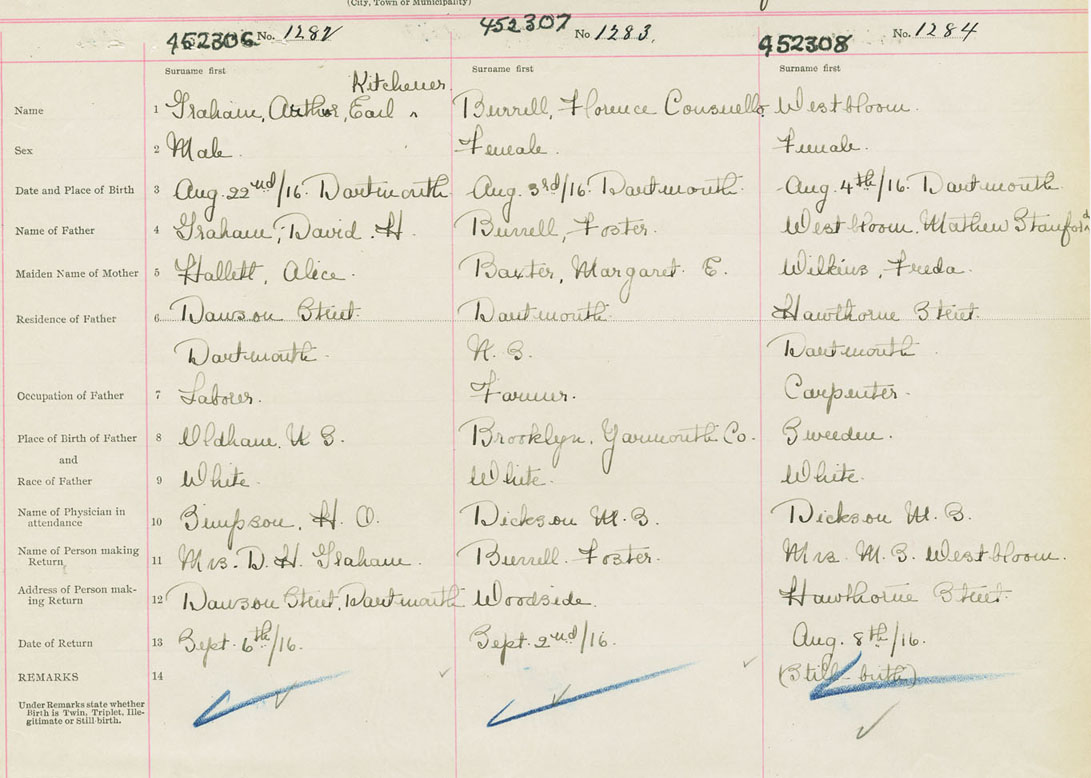 (City, Town or Municipality)
452306 No. 1282 452307 No 1283. 452308 No. 1284
Surname first Surname first Surname first
Kitchener
Name 1 Graham, Arthur, Earl ^ Burrell, Florence Consuello Westbloom.
Sex 2 Male. Female. Female.
Date and Place of Birth 3 Aug. 22nd/16. Dartmouth Aug. 3rd/16. Dartmouth. Aug. 4th/16. Dartmouth.
Name of Father 4 Graham, David. H. Burrell, Foster. Westbloom. Mathew Stanford
Maiden Name of Mother 5 Hallett, Alice. Baxter, Margaret. E. Wilkins, Freda.
Residence of Father 6 Dawson Street. Dartmouth. Hawthorne Street.
Dartmouth. N. S. Dartmouth.
Occupation of Father 7 Laborer. Farmer. Carpenter.
Place of Birth of Father 8 Oldham, N S. Brooklyn. Yarmouth Co. Sweeden.
and
Race of Father 9 White. White. White.
Name of Physician in
attendance 10 Simpson, H. O. Dickson M. S. Dickson M. S.
Name of Person making
Return 11 Mrs. D. H. Graham. Burrell. Foster. Mrs. M. S. Westbloom.
Address of Person mak-
ing Return 12 Dawson Street, Dartmouth Woodside. Hawthorne Street.
Date of Return 13 Sept. 6th/16. Sept. 2nd/16. Aug. 8th/16.
REMARKS 14 (Still-birth)
Under Remarks state whether
Birth is Twin, Triplet, Ille-
gitimate or Still-birth.